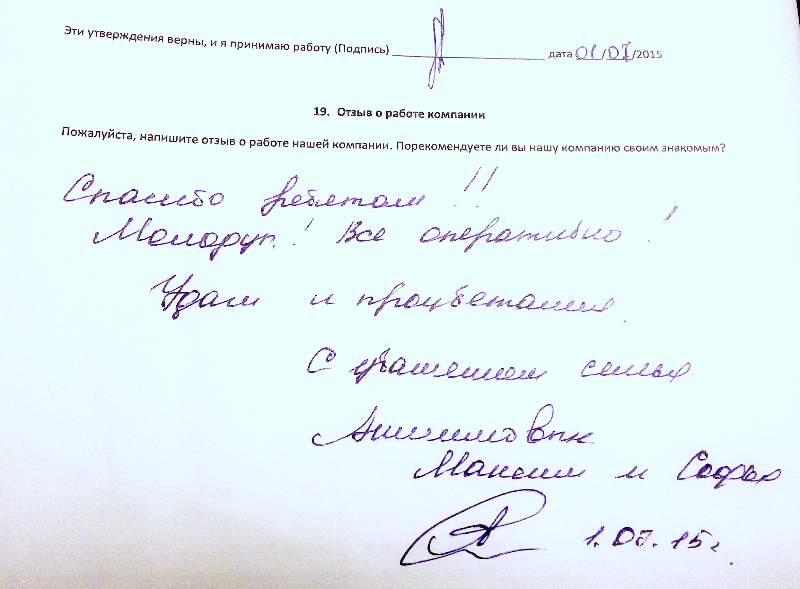 Эти утверждения верны, и я принимаю работу (Подпись) ____________ дата 01/07/2015
19. Отзыв о работе компании
Пожалуйста, напишите отзыв о работе нашей компании. Порекомендуете ли вы нашу компанию своим знакомым?
Спасибо ребятам!!
Все оперативно!
и процветания
С уважением семья
Максим и Софья
1.07.15г.